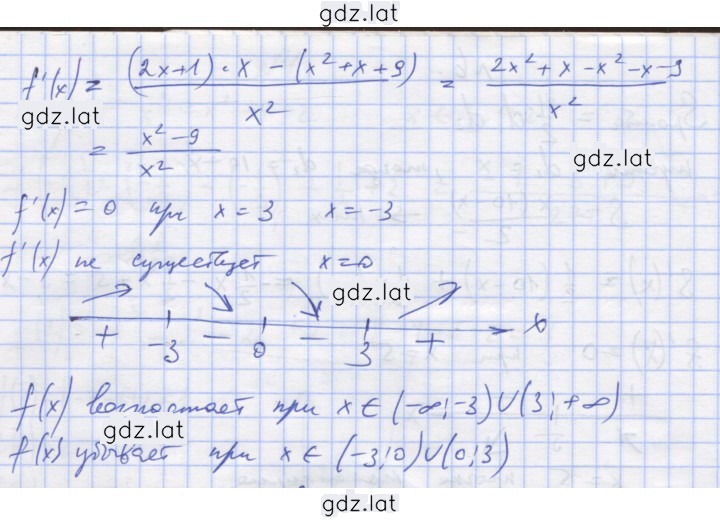 gdz.lat
f'(x) = ((2x+1)·x − (x²+x+9))/x² = (2x²+x−x²−x−9)/x²
gdz.lat
= (x²−9)/x²
gdz.lat
f'(x)=0 при x=3 x=−3
f'(x) не существует x=0
gdz.lat
+ −3 − 0 − 3 + x
f(x) возрастает при x∈(−∞;−3)∪(3;+∞)
gdz.lat
f(x) убывает при x∈(−3;0)∪(0;3)
gdz.lat